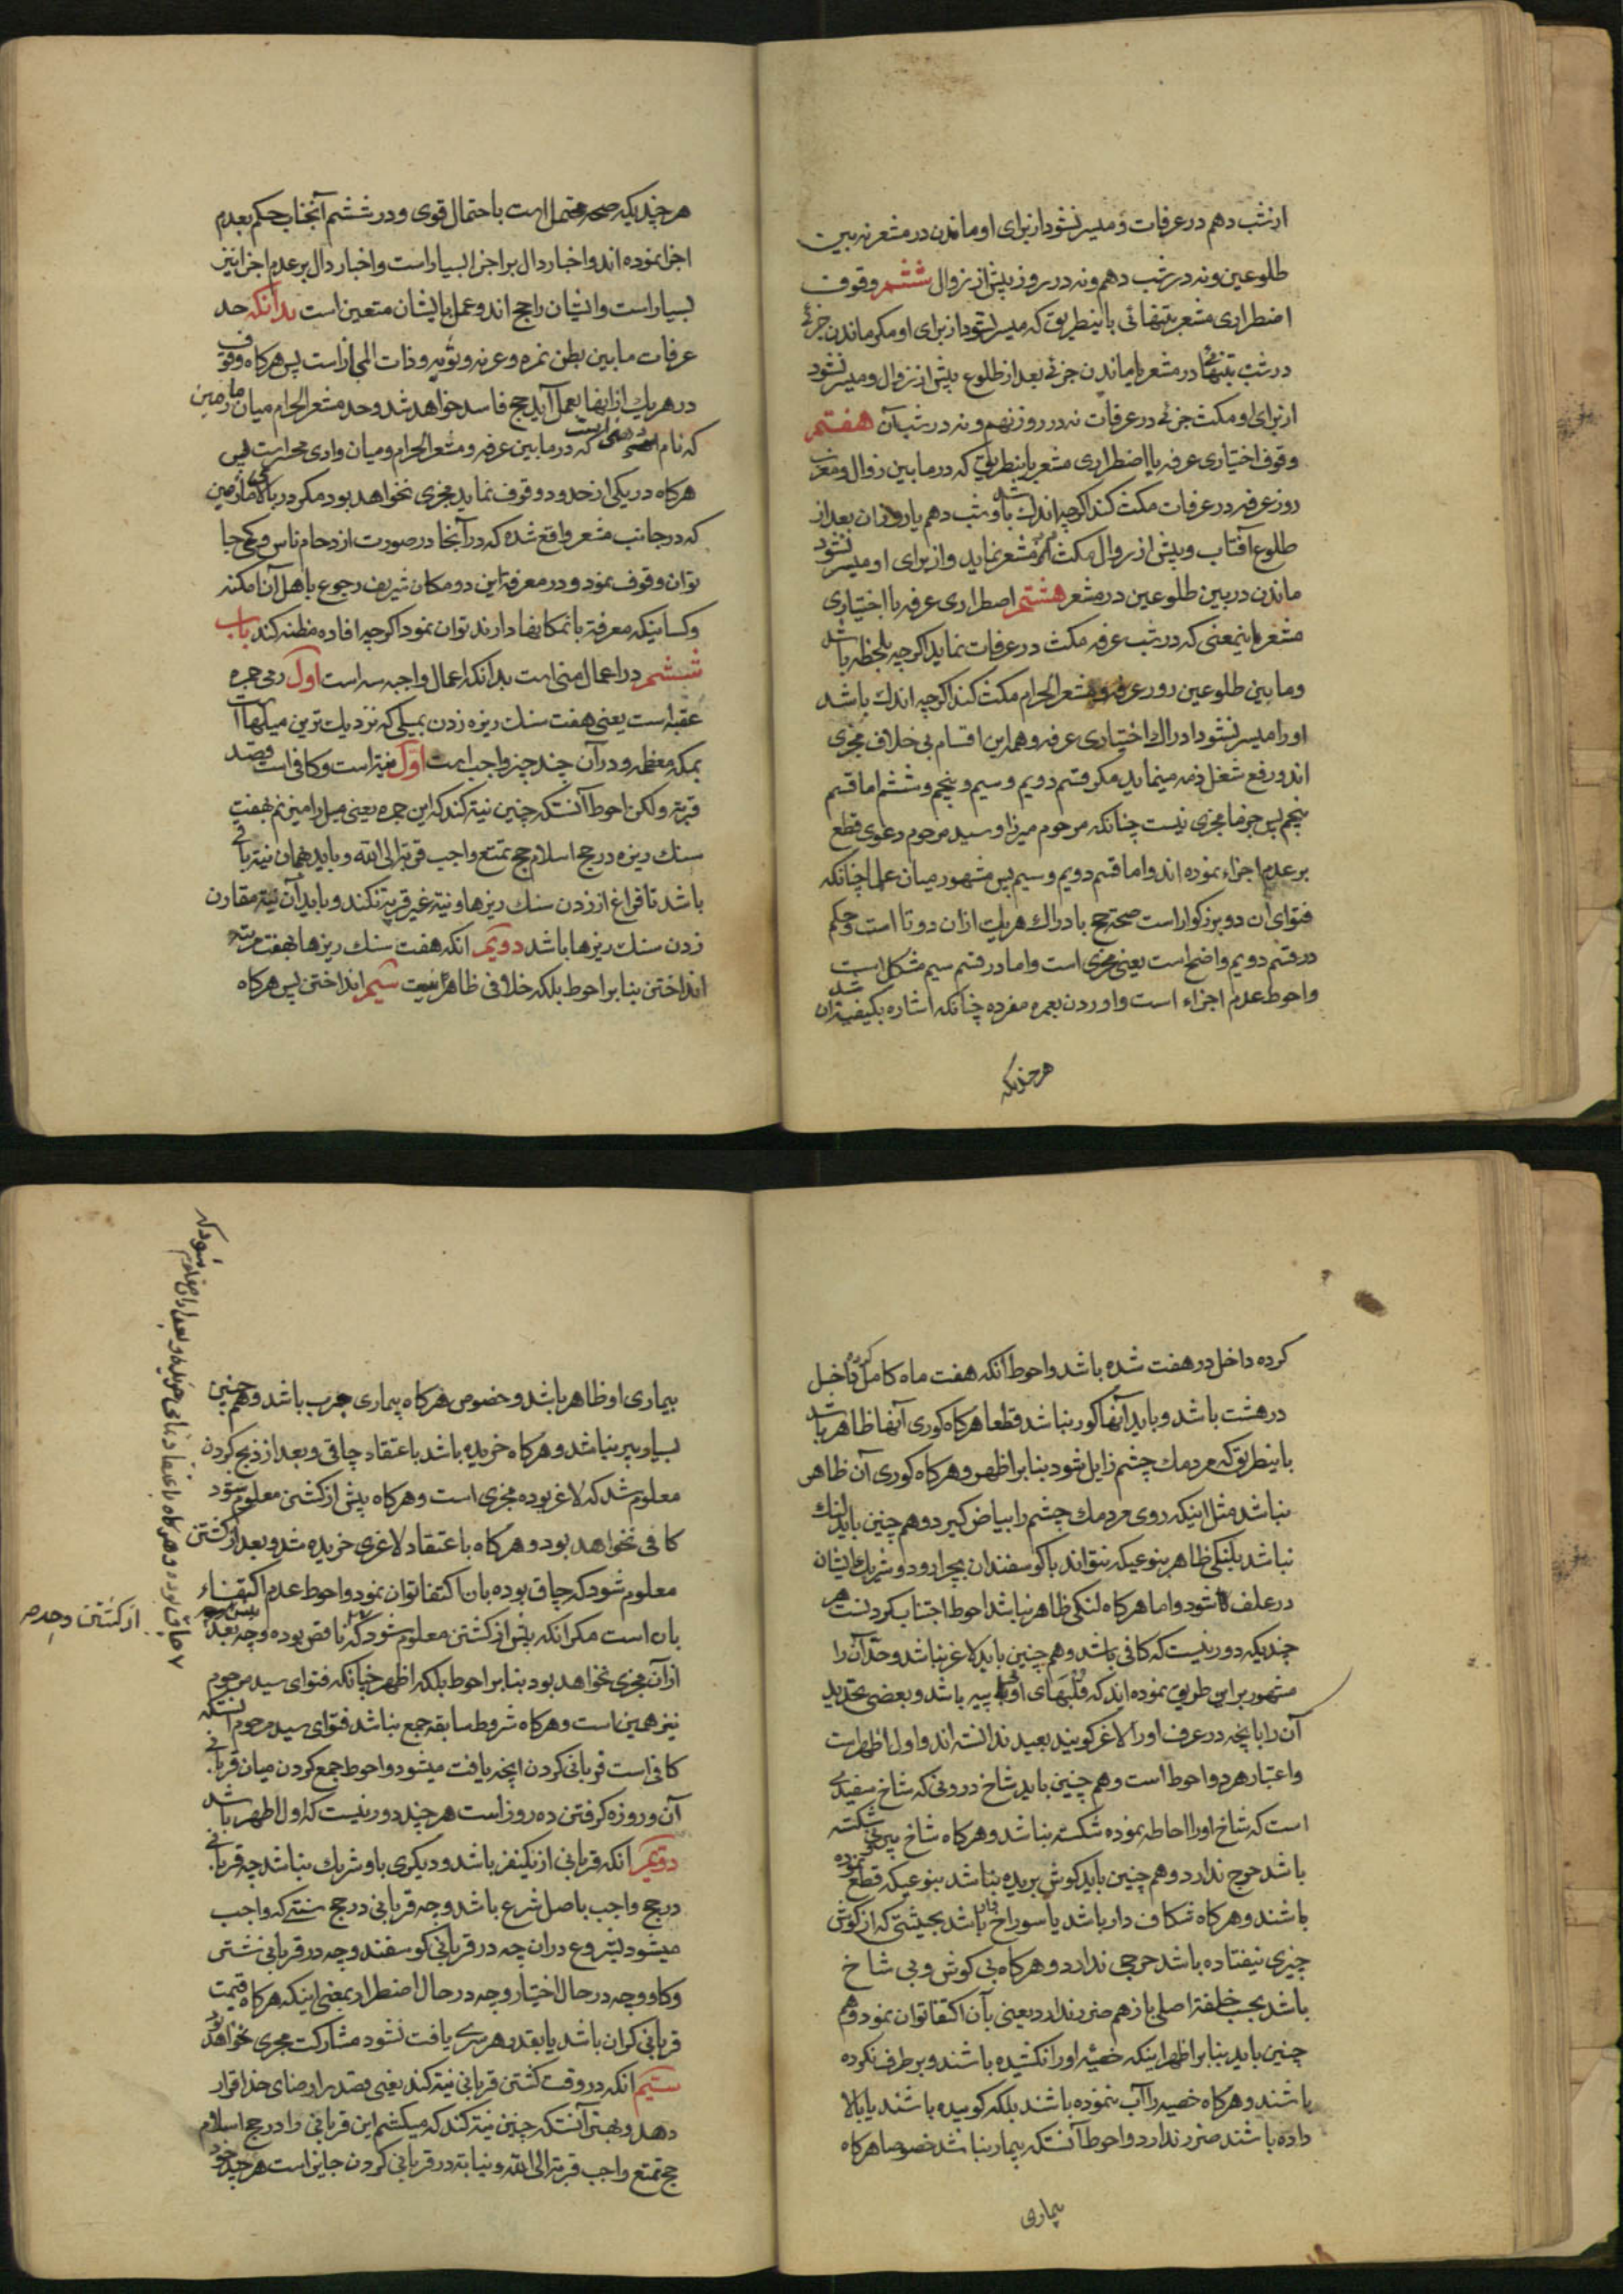 از شب دهم در عرفات و میسر نشود از برای او ماندن در مشعر نه بین
طلوعین و نه در شب دهم و نه در روز پیش از زوال ششم وقوف
اضطراری مشعر بتنهائی باینطریق که میسر نشود از برای او مکر ماندن جزئی
در شب بتنهائی در مشعر یا ماندن جزئی بعد از طلوع پیش از زوال و میسر نشود
از برای او مکث جزئی در عرفات نه در روز نهم و نه در شب آن هفتم
وقوف اختیاری عرفه با اضطراری مشعر باینطریق که در ما بین زوال و مغرب
روز عرفه در عرفات مکث کند اکرچه اندک باشد و شب دهم یا روز ان بعد از
طلوع آفتاب و پیش از زوال مکث در مشعر نماید و از برای او میسر نشود
ماندن در بین طلوعین در مشعر هشتم اضطراری عرفه با اختیاری
مشعر باینمعنی که در شب عرفه مکث در عرفات نماید اکرچه یلحظه باشد
و ما بین طلوعین روز عرفه و مشعر الحرام مکث کند اکرچه اندک باشد
او را میسر نشود ادراک اختیاری عرفه و همه این اقسام بی خلاف مجزی
اند و رفع شغل ذمه مینماید مکر قسم دویم و سیم و پنجم و ششم اما قسم
پنجم پس جزما مجزی نیست چنانکه مرحوم میرزا و سید مرحوم دعوی قطع
بر عدم اجزاء نموده اند و اما قسم دویم و سیم پس مشهور میان علما چنانکه
فتوای ان دو بزرکوار است صحة حج بادراک هر یک از ان دو تا است و حکم
در قسم دویم واضح است یعنی مجزی است و اما در قسم سیم مشکل است
و احوط عدم اجزاء است و اوردن بعمره مفرده چنانکه اشاره بکیفیة ان شد
هر چندیکه
هر چندیکه صحه محتمل است باحتمال قوی و در ششم آنجناب حکم بعدم
اجزا نموده اند و اخبار دال بر اجزا بسیار است و اخبار دال بر عدم اجزا نیز
بسیار است و ایشان راجح اند و عمل بایشان متعین است بدانکه حد
عرفات ما بین بطن نمره و عرنه و ثویه و ذات المجاز است پس هرکاه وقوف
در هر یک از اینها بعمل آید حج فاسد خواهد شد و حد مشعر الحرام میان مازمین
که نام است که در ما بین عرفه و مشعر الحرام و میان وادی محسر است پس
هرکاه در یکی از حدود وقوف نماید مجزی نخواهد بود مکر در بالای مازمین
که در جانب مشعر واقع شده که در آنجا در صورت ازدحام ناس و کمی جا
توان وقوف نمود و در معرفة این دو مکان شریف رجوع باهل آن امکنه
و کسانیکه معرفة بانمکانها دارند توان نمود اکرچه افاده مظنه کند باب
ششم در اعمال منی است بدانکه اعمال واجبه سه است اول رمی جمره
عقبه است یعنی هفت سنک ریزه زدن بمیلی که نزدیک ترین میلها است
بمکه معظمه و در آن چند چیز واجب است اول نیة است و کافی است قصد
قربة و لکن احوط آنستکه چنین نیة کند که این جمره یعنی میل را میزنم بهفت
سنک ریزه در حج اسلام حج تمتع واجب قربة الی الله و باید همان نیة باقی
باشد تا فراغ از زدن سنک ریزها و نیة غیر قربة نکند و باید آن نیة مقارن
زدن سنک ریزها باشد دویم انکه هفت سنک ریزها بهفت مرتبه
انداختن بنا بر احوط بلکه خلافی ظاهرا نیست سیم انداختن پس هرکاه
کرده داخل در هفت شده باشد و احوط آنکه هفت ماه کامل کرده داخل
در هشت باشد و باید آنها کور نباشد قطعا هرکاه کوری آنها ظاهر باشد
باینطریق که مردمک چشم زایل شود بنا بر اظهر و هرکاه کوری آن ظاهر
نباشد مثل اینکه روی مردمک چشم را بیاض کیرد و هم چنین باید لنک
نباشد بلنکی ظاهر بنوعیکه نتواند با کوسفندان بچرا رود و شریک ایشان
در علف شود و اما هرکاه لنکی ظاهر نباشد احوط اجتناب کردنست هر
چندیکه دور نیست که کافی باشد و هم چنین باید لاغر نباشد و حد آن را
مشهور بر این طریق نموده اند که قلبهای او پیه باشد و بعضی تحدید
آن را بانچه در عرف او را لاغر کویند بعید ندانسته اند و اول اظهر است
و اعتبار هر دو احوط است و هم چنین باید شاخ درونی که شاخ سفیدی
است که شاخ او را احاطه نموده شکسته نباشد و هرکاه شاخ بیرونی شکسته
باشد حرج ندارد و هم چنین باید کوش بریده نباشد بنوعیکه قطع نموده
باشند و هرکاه شکاف دار باشد یا سوراخ دار باشد بحیثیتی که از کوش
چیزی نیفتاده باشد حرجی ندارد و هرکاه بی کوش و بی شاخ
باشد بحسب خلقة اصلی باز هم ضرر ندارد یعنی بآن اکتفا توان نمود و هم
چنین باید بنا بر اظهر اینکه خصیه او را نکشیده باشند و بر طرف نکرده
باشند و هرکاه خصیه را آب نموده باشند بلکه کوبیده باشند یا بالا
داده باشند ضرر ندارد و احوط آنستکه بیمار نباشد خصوصا هرکاه
بیماری
بیماری او ظاهر باشد و خصوص هرکاه بیماری جرب باشد و هم چنین
بسیار پیر نباشد و هرکاه خریده باشد باعتقاد چاقی و بعد از ذبح کردن
معلوم شد که لاغر بوده مجزی است و هرکاه پیش از کشتن معلوم شود
کافی نخواهد بود و هرکاه باعتقاد لاغری خریده شد و بعد از کشتن
معلوم شود که چاق بوده بان اکتفا توان نمود و احوط عدم اکتفاء
بان است مکر انکه پیش از کشتن معلوم شود که ناقص بوده و چه بعد
از آن مجزی نخواهد بود بنا بر احوط بلکه اظهر چنانکه فتوای سید مرحوم
نیز همین است و هرکاه شروط سابقه جمع نباشد فتوای سید مرحوم آنستکه
کافی است قربانی کردن انچه یافت میشود و احوط جمع کردن میان قربانی
آن و روزه کرفتن ده روز است هر چند دور نیست که اول اظهر باشد
دویم انکه قربانی از یکنفر باشد و دیکری باو شریک نباشد چه قربانی
در حج واجب باصل شرع باشد و چه قربانی در حج سنتی که واجب
میشود بشروع دران چه در قربانی کوسفند و چه در قربانی شتر
و کاو و چه در حال اختیار و چه در حال اضطرار بمعنی اینکه هرکاه قیمت
قربانی کران باشد یا بقدر هر سری یافت نشود مشارکت مجزی نخواهد بود
سیم انکه در وقت کشتن قربانی نیة کند یعنی قصد را رضای خدا قرار
دهد و بهتر آنستکه چنین نیة کند که میکشم این قربانی را در حج اسلام
حج تمتع واجب قربة الی الله و نیابة در قربانی کردن جایز است هر چند خود
از کشتن و چه
و هرکاه باعتقاد خریده و بعد از ان معلوم شود که